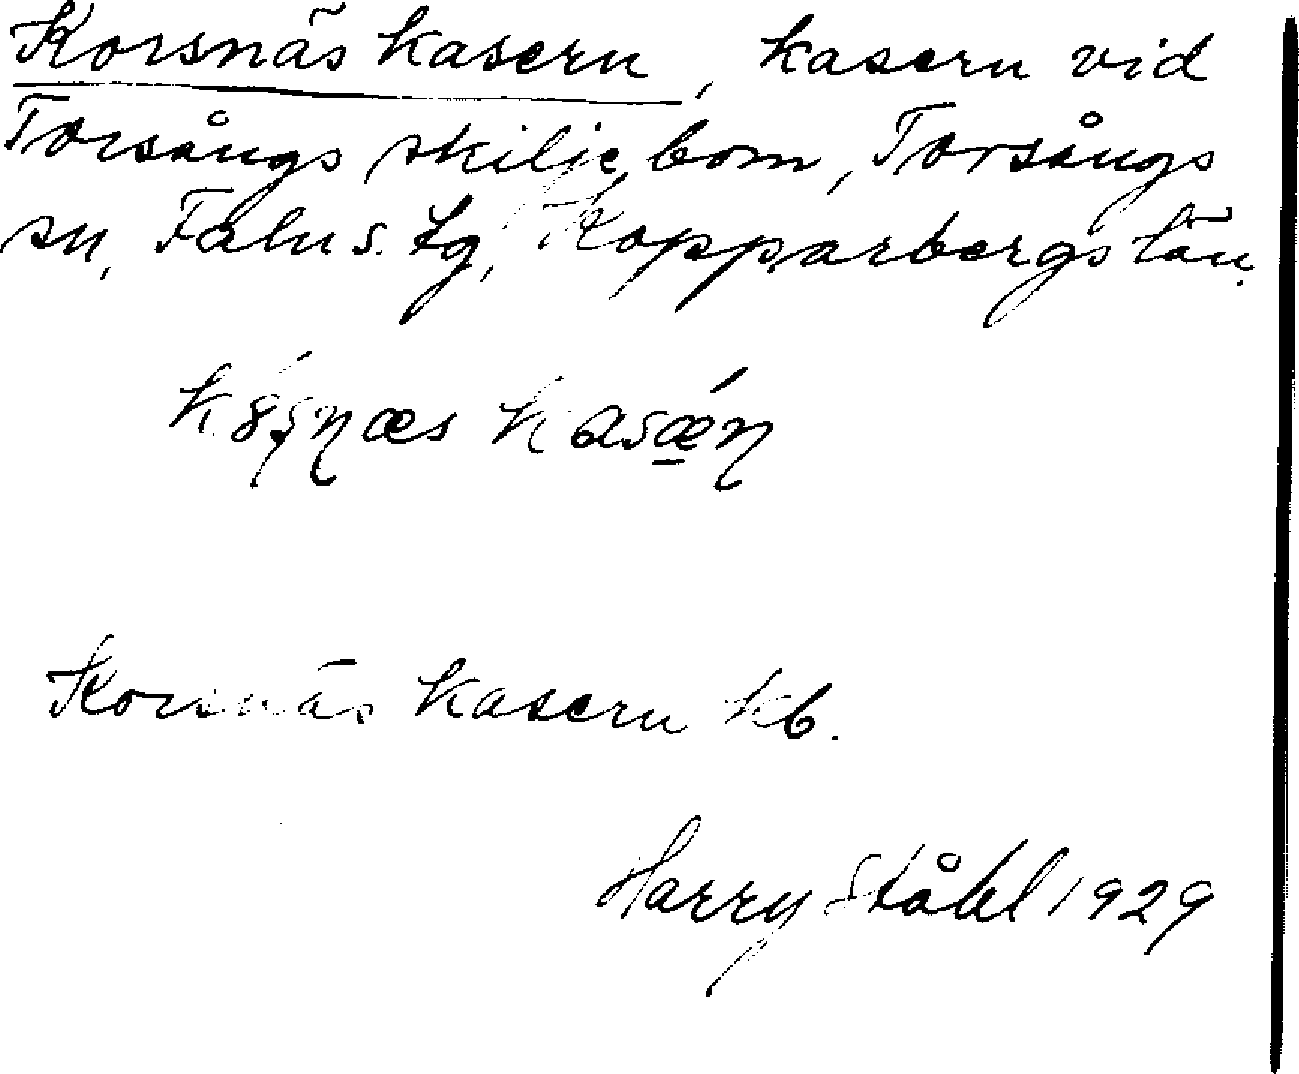 Korsnäs kasern, kasern vid
Torsångs skiljebom, Torsångs
sn, Falu s. tg, Kopparbergs län.
kasǽ̱n
Korsnäs kasern kb.
Harry Ståhl 1929